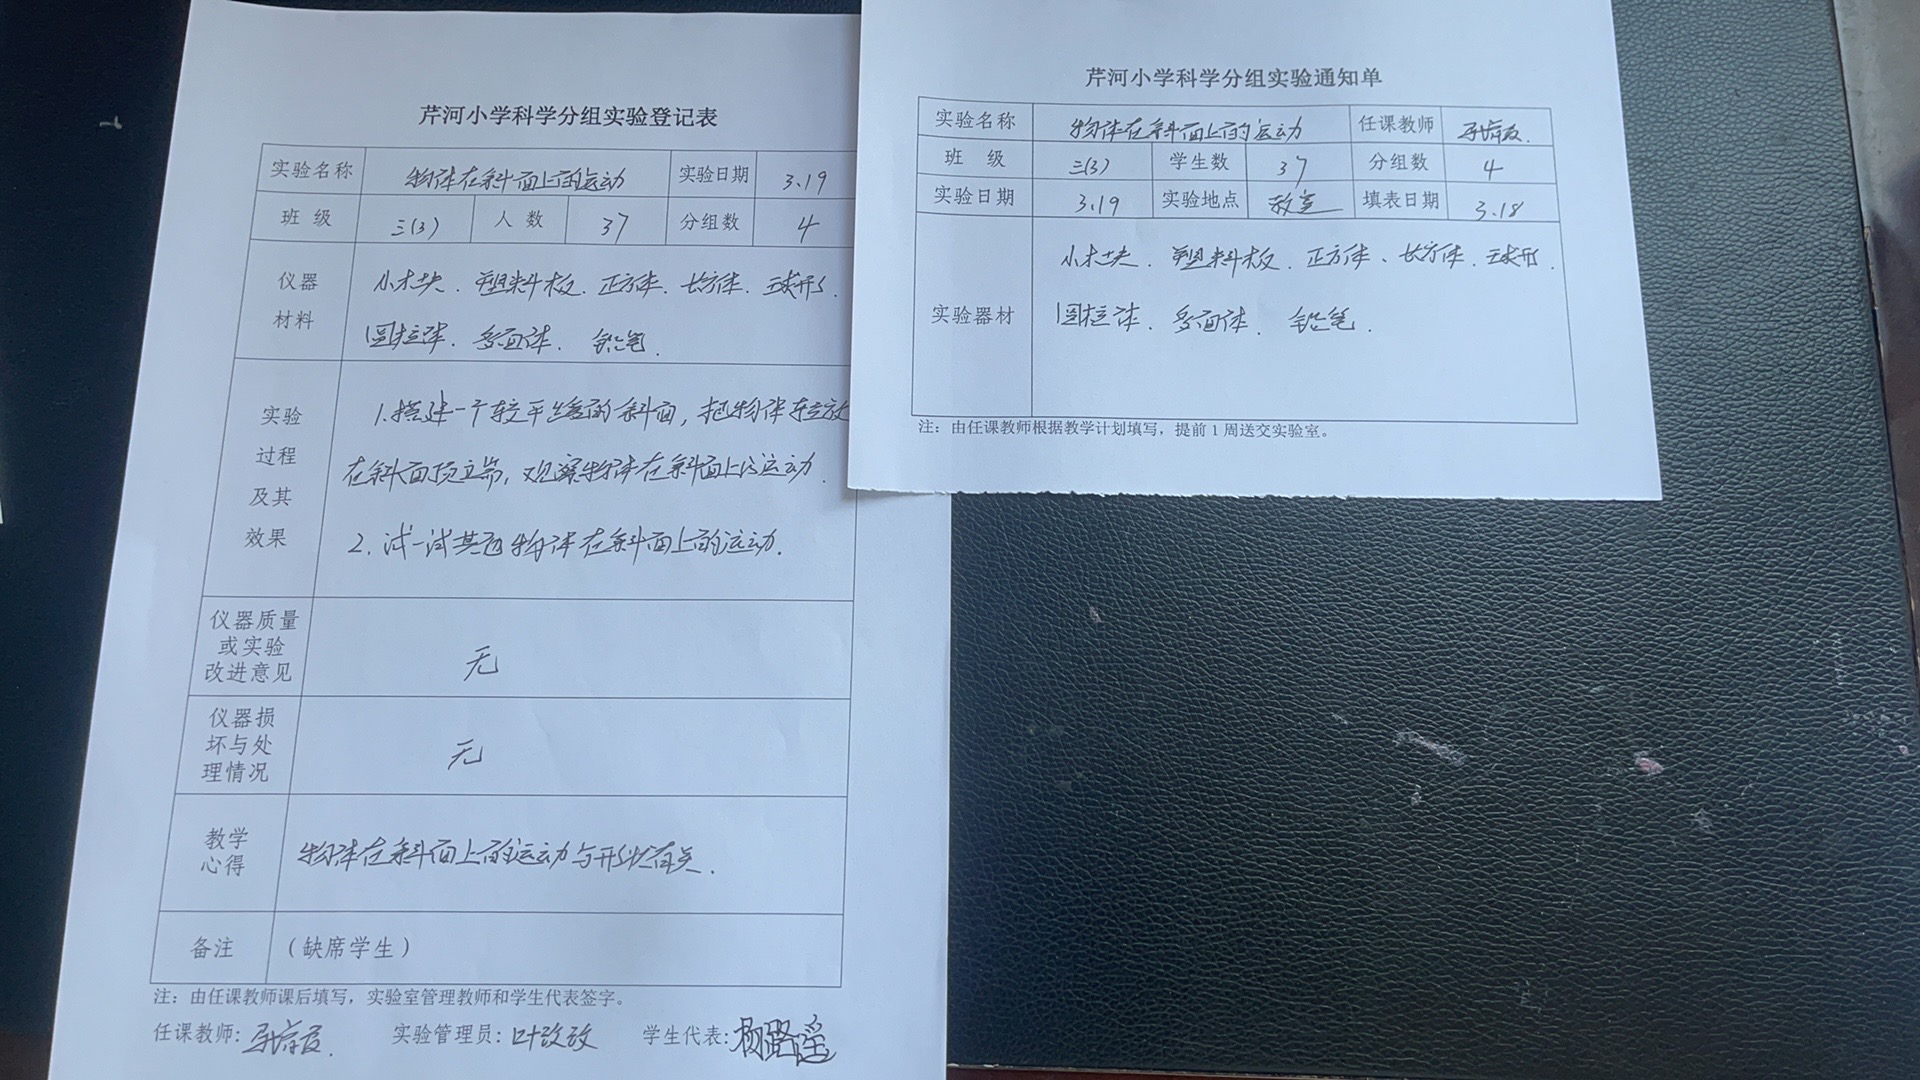 芹河小学科学分组实验登记表
实验名称 物体在斜面上的运动 实验日期 3.19
班 级 三(3) 人 数 37 分组数 4
仪器
材料
小木块. 塑料板. 正方体. 长方体. 球形.
圆柱体. 多面体. 铅笔.
实验
过程
及其
效果
1.搭建一个较平缓的斜面,把物体轻放
在斜面顶端,观察物体在斜面上的运动.
2.试一试其他物体在斜面上的运动.
仪器质量
或实验
改进意见
无
仪器损
坏与处
理情况
无
教学
心得
物体在斜面上的运动与形状有关.
备注 (缺席学生)
注:由任课教师课后填写,实验室管理教师和学生代表签字。
任课教师: 实验管理员: 学生代表:杨璐瑶
芹河小学科学分组实验通知单
实验名称 物体在斜面上的运动 任课教师
班 级 三(3) 学生数 37 分组数 4
实验日期 3.19 实验地点 教室 填表日期 3.18
实验器材
小木块. 塑料板. 正方体、长方体. 球形.
圆柱体. 多面体. 铅笔.
注:由任课教师根据教学计划填写,提前1周送交实验室。